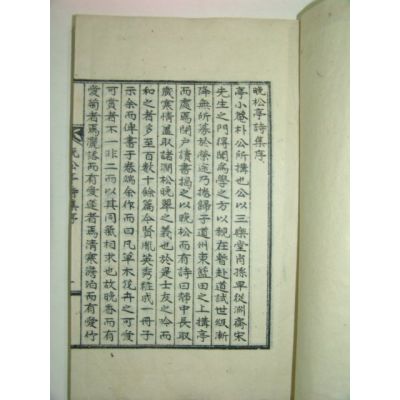 晚松亭詩集序
亭小菴朴公所搆也公以三樂堂肖孫早從淵齋宋
先生之門得聞爲學之方以親在嘗赴道試世級漸
降無所事於榮途乃捲歸子道州東籃田之上搆亭
而處焉閉戶讀書揭之以晚松而有詩曰鄁中長取
廣寒情盖取諸澗松晚翠之義也於是士友之唅而
和之者多至百數十餘篇今賢胤英秀粧成一冊子
示余而俾書于卷端余作而曰凡草木花卉之可愛
可賞者不一非二而以其同氣相求也故晚香而有
愛菊者焉灑落而有愛蓮者焉清寒澹泊而有愛竹
晚松亭詩集序
一